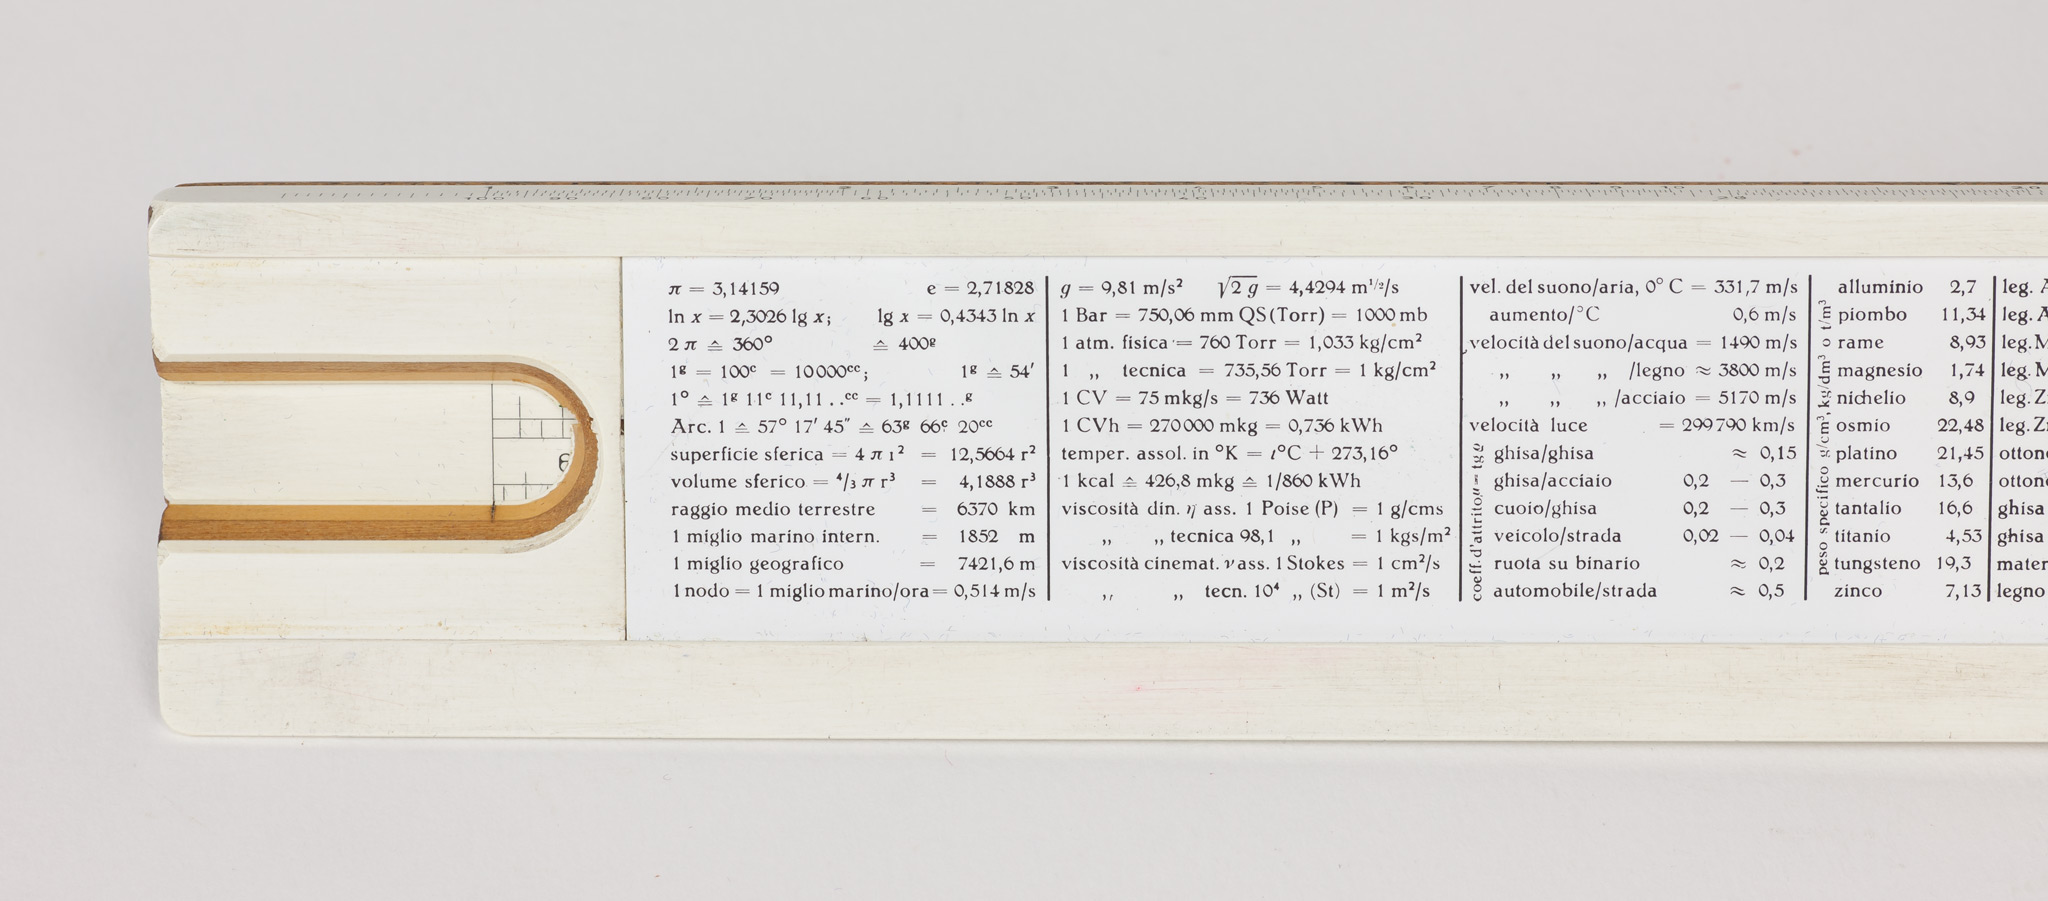 π = 3,14159 e = 2,71828
ln x = 2,3026 lg x; lg x = 0,4343 ln x
2 π ≙ 360° ≙ 400ᵍ
1ᵍ = 100ᶜ = 10000ᶜᶜ; 1ᵍ ≙ 54′
1° ≙ 1ᵍ 11ᶜ 11,11 . .ᶜᶜ = 1,1111 . .ᵍ
Arc. 1 ≙ 57° 17′ 45″ ≙ 63ᵍ 66ᶜ 20ᶜᶜ
superficie sferica = 4 π r² = 12,5664 r²
volume sferico = ⁴/₃ π r³ = 4,1888 r³
raggio medio terrestre = 6370 km
1 miglio marino intern. = 1852 m
1 miglio geografico = 7421,6 m
1 nodo = 1 miglio marino/ora = 0,514 m/s
g = 9,81 m/s² √2 g = 4,4294 m¹ᐟ²/s
1 Bar = 750,06 mm QS (Torr) = 1000 mb
1 atm. fisica = 760 Torr = 1,033 kg/cm²
1 „ tecnica = 735,56 Torr = 1 kg/cm²
1 CV = 75 mkg/s = 736 Watt
1 CVh = 270000 mkg = 0,736 kWh
temper. assol. in °K = t°C + 273,16°
1 kcal ≙ 426,8 mkg ≙ 1/860 kWh
viscosità din. η ass. 1 Poise (P) = 1 g/cms
„ „ tecnica 98,1 „ = 1 kgs/m²
viscosità cinemat. ν ass. 1 Stokes = 1 cm²/s
„ „ tecn. 10⁴ „ (St) = 1 m²/s
vel. del suono/aria, 0° C = 331,7 m/s
aumento/°C 0,6 m/s
velocità del suono/acqua = 1490 m/s
„ „ „ /legno ≈ 3800 m/s
„ „ „ /acciaio = 5170 m/s
velocità luce = 299790 km/s
coeff. d'attrito μ = tg ϱ
ghisa/ghisa ≈ 0,15
ghisa/acciaio 0,2 — 0,3
cuoio/ghisa 0,2 — 0,3
veicolo/strada 0,02 — 0,04
ruota su binario ≈ 0,2
automobile/strada ≈ 0,5
peso specifico g/cm³, kg/dm³ o t/m³
alluminio 2,7
piombo 11,34
rame 8,93
magnesio 1,74
nichelio 8,9
osmio 22,48
platino 21,45
mercurio 13,6
tantalio 16,6
titanio 4,53
tungsteno 19,3
zinco 7,13
leg. A
leg. A
leg. M
leg. M
leg. Z
leg. Z
otton
otton
ghisa
ghisa
mater
legno